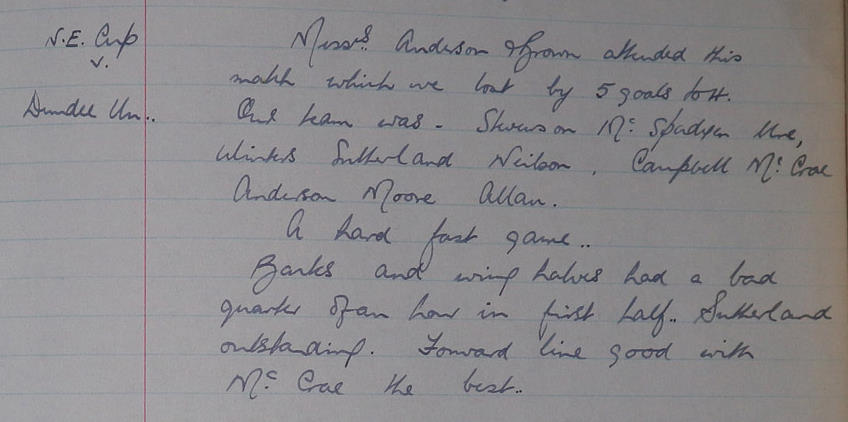 N.E. Cup
v.
Dundee Un..
Messrs Anderson & Brown attended this
match which we lost by 5 goals to 4.
Our team was - Stevenson McSpadyen Ure,
Winters Sutherland Neilson, Campbell McCrae
Anderson Moore Allan.
A hard fast game..
Backs and wing halves had a bad
quarter of an hour in first half.. Sutherland
outstanding. Forward line good with
McCrae the best..